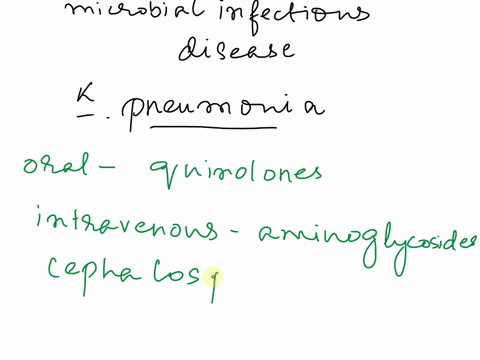 microbial infections
disease
K. pneumonia
oral - quinolones
intravenous - aminoglycosides
cephalosp